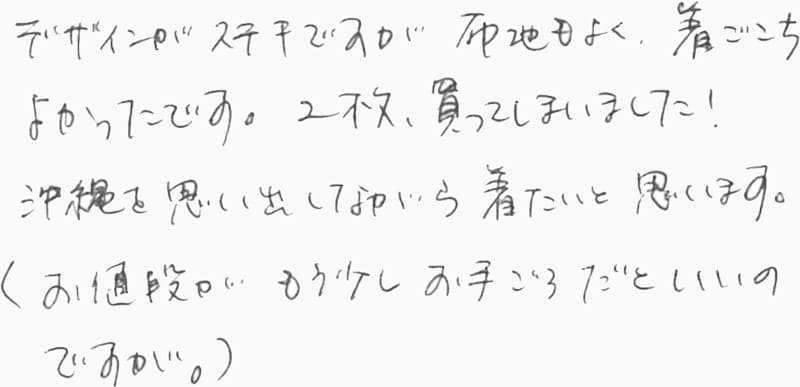 デザインがステキですが 布地もよく、着ごこち
よかったです。2枚、買ってしまいました！
沖縄を思い出しながら着たいと思います。
（お値段がもう少しお手ごろだといいの
ですが。）